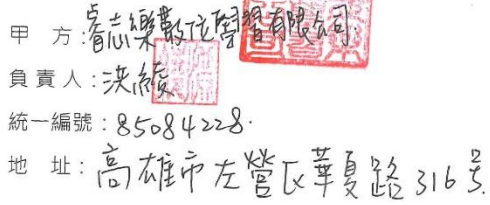 甲 方:睿志樂數位學習有限公司.
負責人:洪綾
統一編號:85084228.
地 址:高雄市左營区華夏路316号.